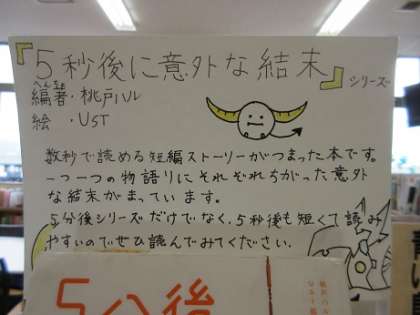 『5秒後に意外な結末』シリーズ
へんちょ
編著・桃戸ハル
絵・UST
数秒で読める短編ストーリーがつまった本です。
一つ一つの物語りにそれぞれちがった意外
な結末がまっています。
5分後シリーズだけでなく、5秒後も短くて読み
やすいのでぜひ読んでみてください。
5分後